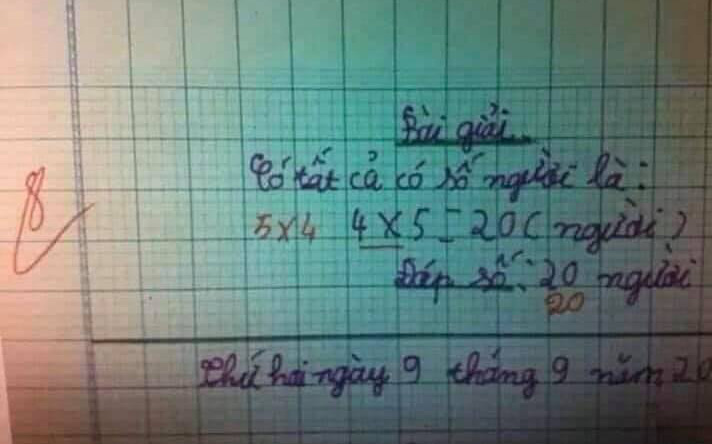 Bài giải
Có tất cả có số người là:
8
5x4 4 x 5 = 20 (người)
Đáp số: 20 người
20
Thứ hai ngày 9 tháng 9 năm 20